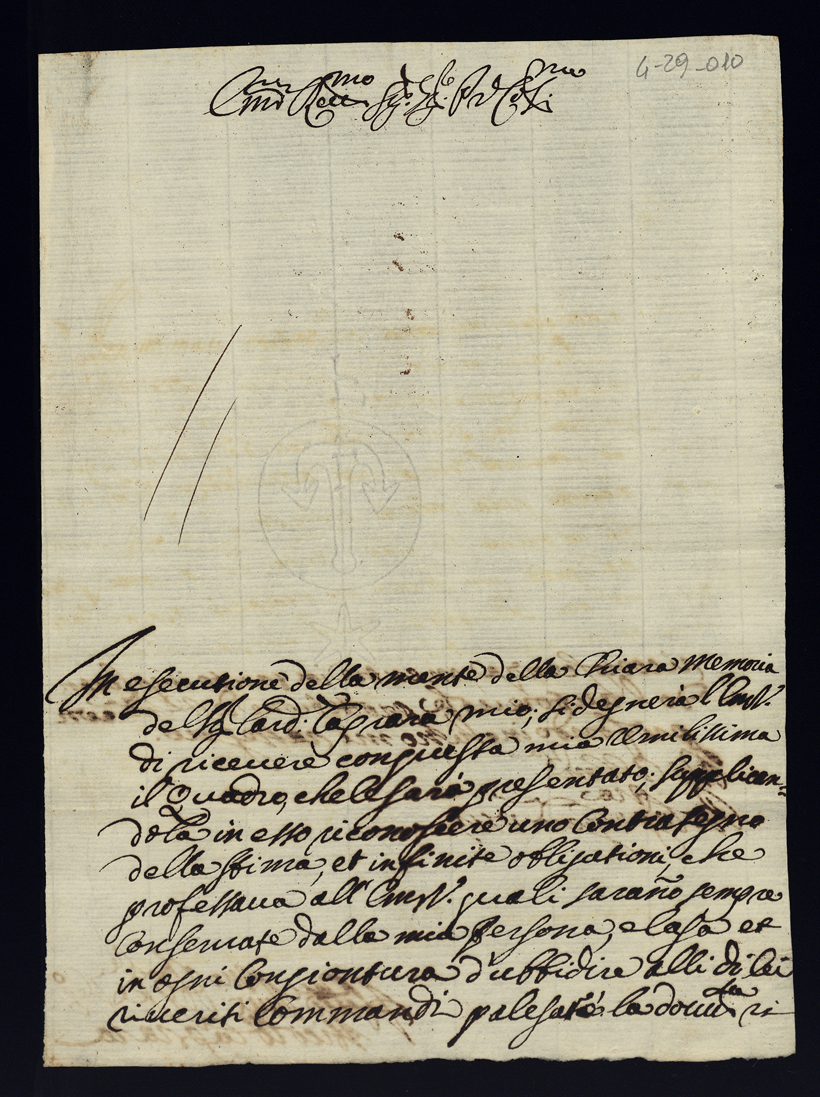 4-29-010
Em.mo Rev.mo Sig.r Sig.r P.ron Col.mo
In esecutione della mente della Chiara Memoria
del Sig.r Card: Caprara mio, si degnerà l'Em. V.
di riceuere con questa mia Umilissima
il Quadro, che le sarà presentato, supplican=
dola in esso riconoscere uno Contrasegno
della stima, et infinite obligationi, che
professaua all'Em. V. quali sarano sempre
Conseruate dalla mia Persona, e Casa et
in ogni Congiontura d'ubbidire alli di lei
riueriti Commandi palesate la douuta ri-